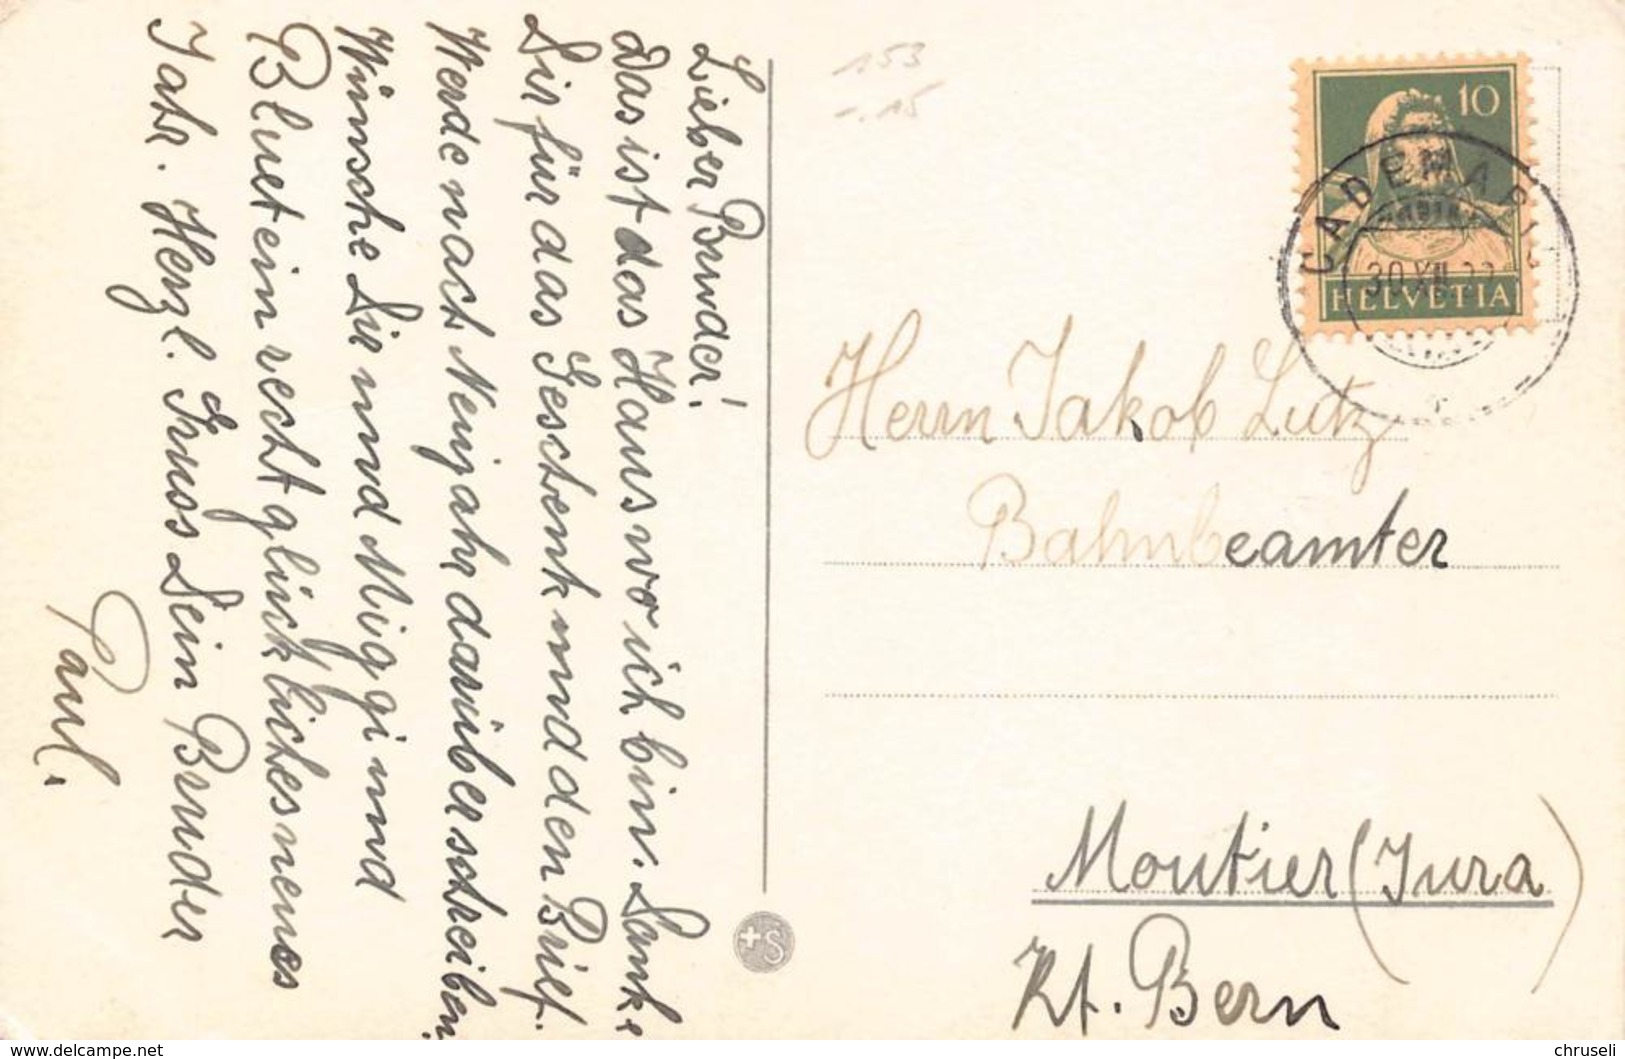 Lieber Bruder!
Das ist das Haus wo ich bin. Danke
Dir für das Geschenk und den Brief.
Werde nach Neujahr darüber schreiben.
Wünsche Dir und Miggi und
Bluet ein recht glückliches neues
Jahr. Herzl. Gruss Dein Bruder
Paul.
153
-.15
10
HELVETIA
CADEMARIO
30.XII.
Herrn Jakob Lutz
Bahnbeamter
Moutier (Jura)
Kt. Bern
+S
delcampe.net
chruseli